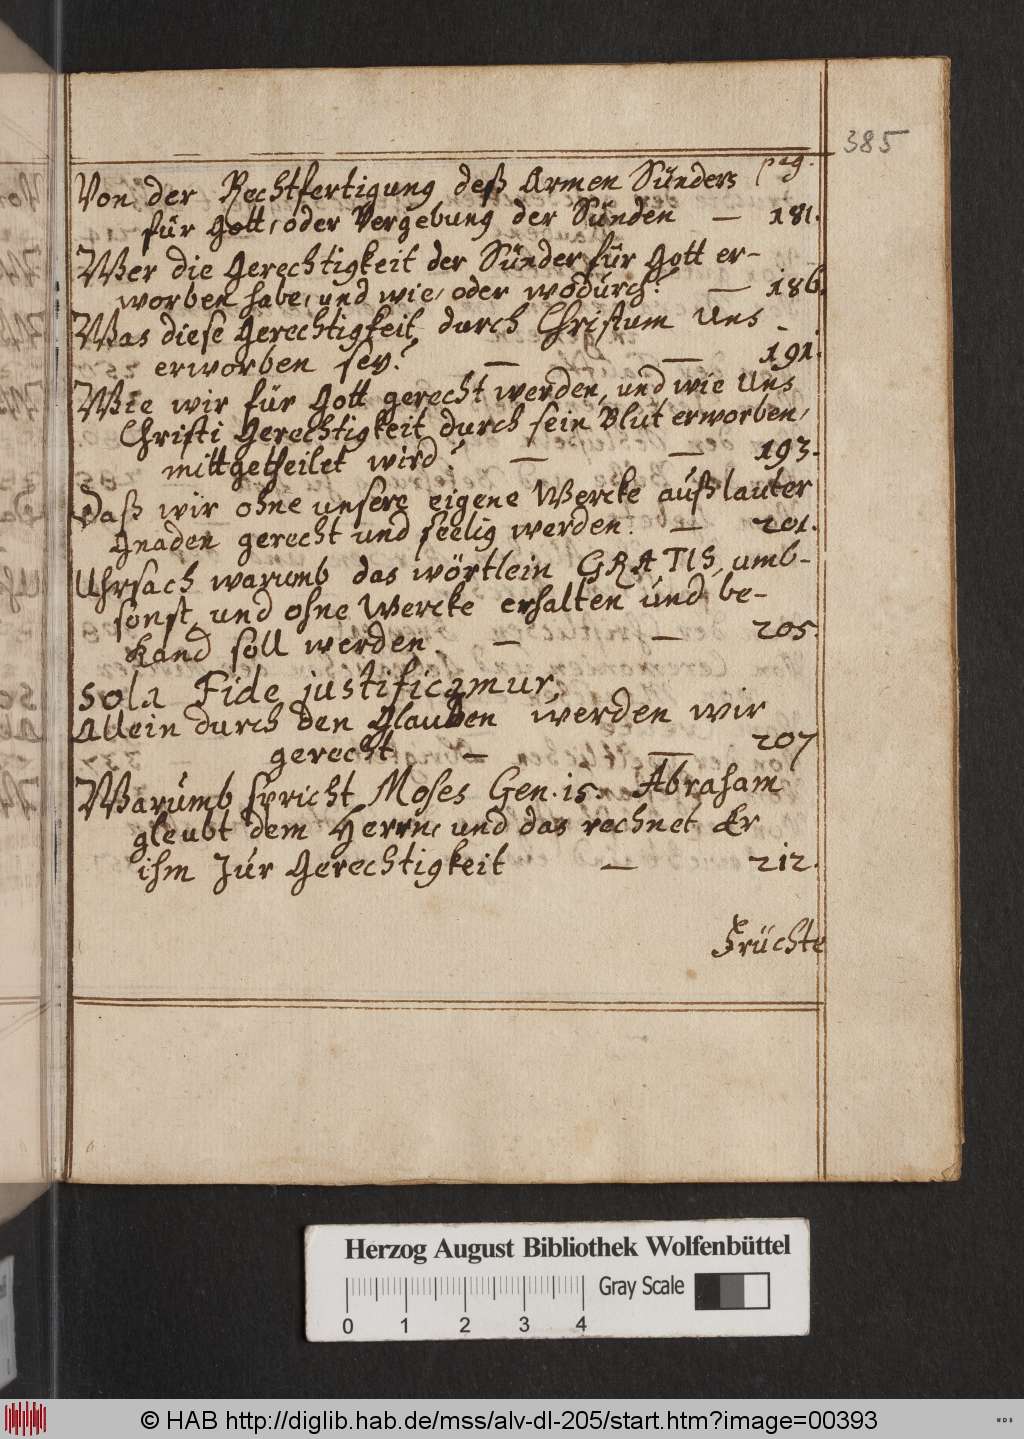 385
pag.
Von der Rechtfertigung deß Armen Sünders
für Gott, oder Vergebung der Sünden — 181.
Wer die Gerechtigkeit der Sünder für Gott er-
worben habe, und wie, oder wodurch? — 186.
Was diese Gerechtigkeit durch Christum Uns
erworben sey? — — 191.
Wie wir für Gott gerecht werden, und wie Uns
Christi Gerechtigkeit durch sein Blut erworben,
mittgetheilet wird? — — 193.
Daß wir ohne unsere eigene Wercke auß lauter
Gnaden gerecht und seelig werden. — 201.
Uhrsach warumb das wörtlein GRATIS, umb-
sonst, und ohne Wercke erhalten und be-
kand soll werden. — — 205.
Sola Fide justificamur,
Allein durch den Glauben werden wir
gerecht — — 207
Warumb spricht Moses Gen. 15. Abraham
gleubt dem Herrn, und das rechnet Er
ihm Zur Gerechtigkeit — 212.
Früchte
Herzog August Bibliothek Wolfenbüttel
Gray Scale
0 1 2 3 4
© HAB http://diglib.hab.de/mss/alv-dl-205/start.htm?image=00393